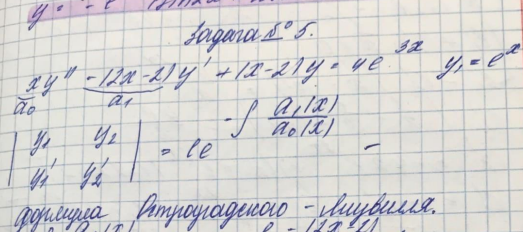 Задача № 5.
xy'' - (2x-2)y' + (x-2)y = 4e^{3x} y₁ = e^x
a₀ a₁
| y₁ y₂ |
| y₁' y₂' | = ce^{-∫ a₁(x)/a₀(x)} -
формула Остроградского - Лиувилля.